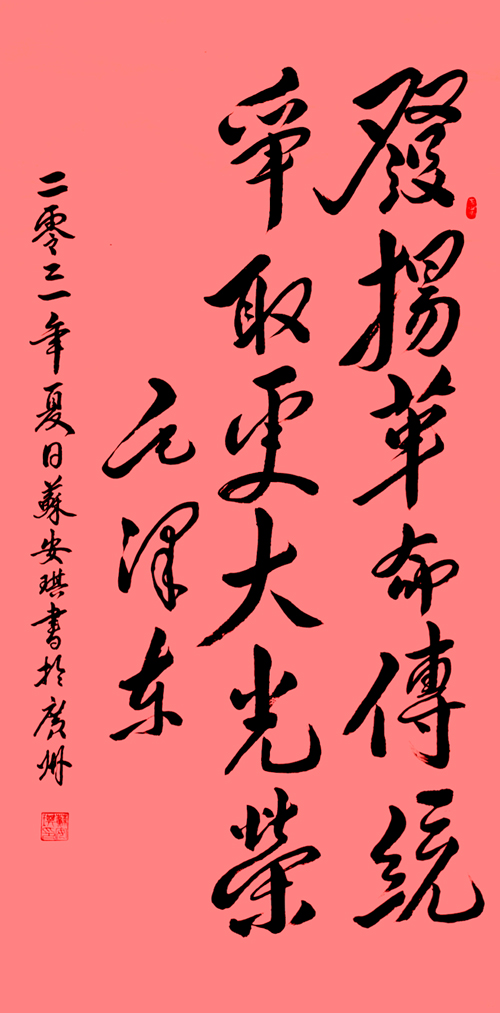 發揚革命傳統
爭取更大光榮
毛澤东
二零二一年夏日蘇安琪書於廣州